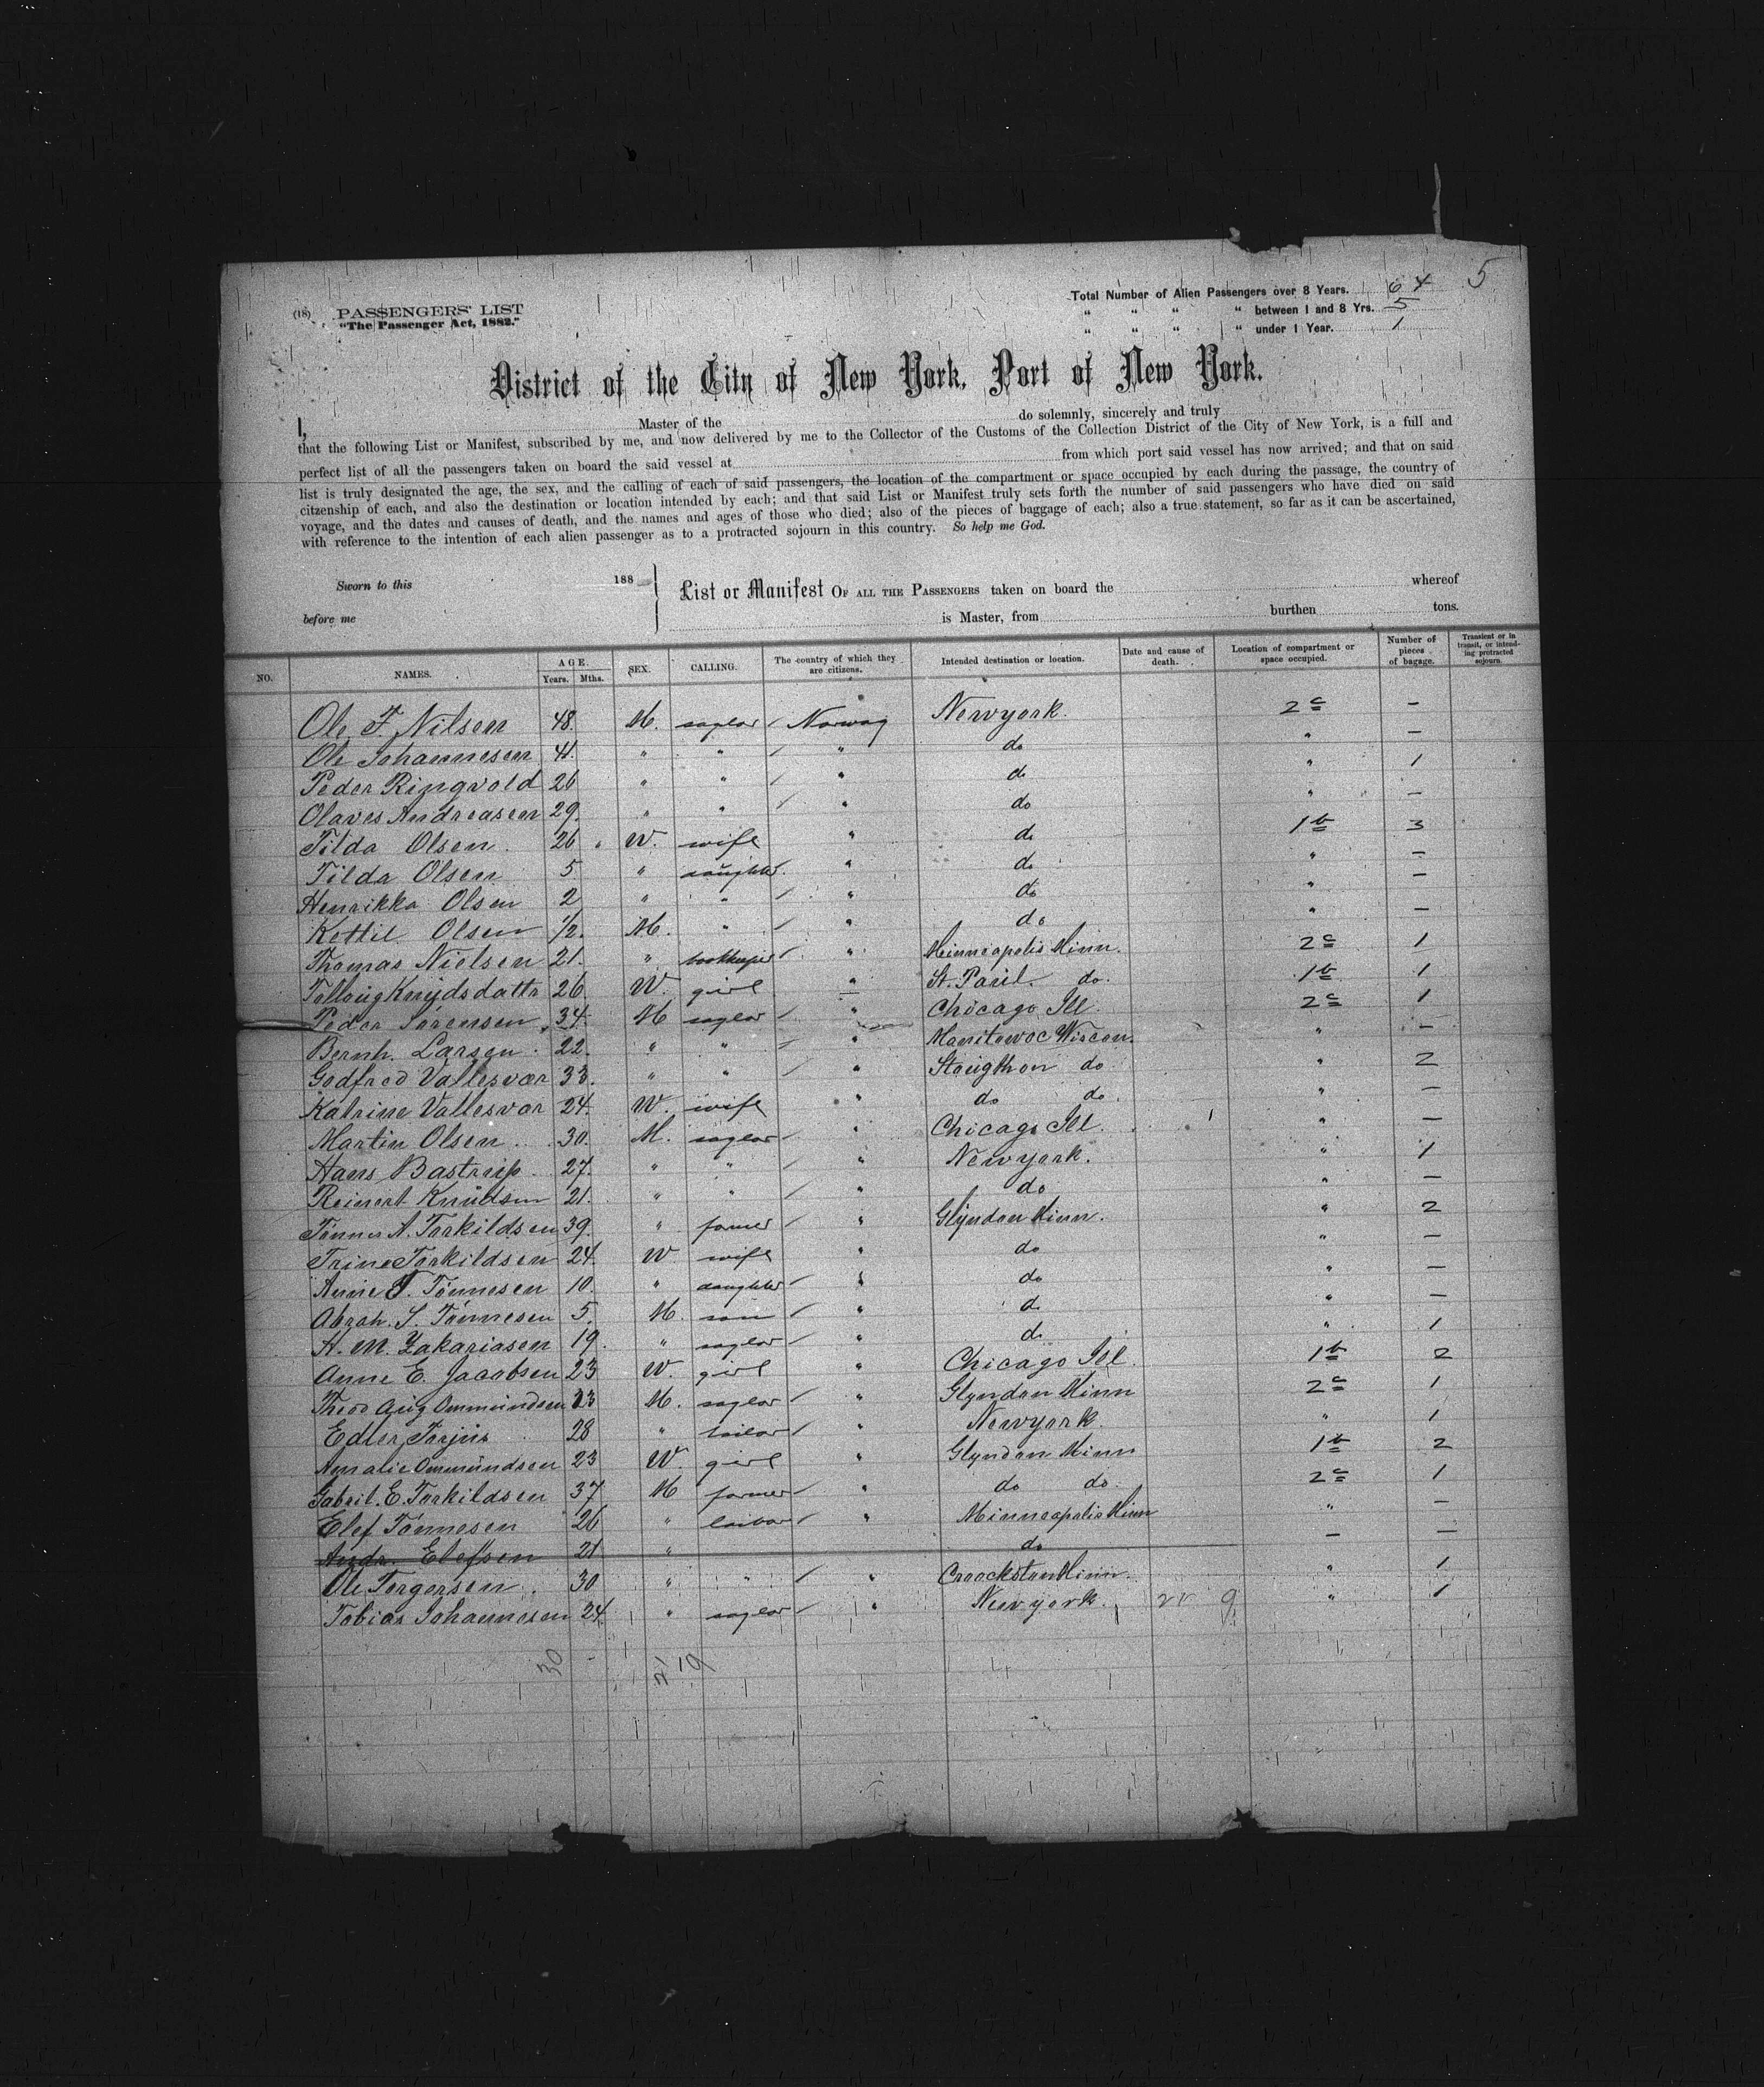 5
Total Number of Alien Passengers over 8 Years. 64
" " " " between 1 and 8 Yrs. 5
" " " " under 1 Year. 1
(18) PASSENGERS' LIST
"The Passenger Act, 1882."
District of the City of New York, Port of New York.
I, Master of the do solemnly, sincerely and truly
that the following List or Manifest, subscribed by me, and now delivered by me to the Collector of the Customs of the Collection District of the City of New York, is a full and
perfect list of all the passengers taken on board the said vessel at from which port said vessel has now arrived; and that on said
list is truly designated the age, the sex, and the calling of each of said passengers, the location of the compartment or space occupied by each during the passage, the country of
citzenship of each, and also the destination or location intended by each; and that said List or Manifest truly sets forth the number of said passengers who have died on said
voyage, and the dates and causes of death, and the names and ages of those who died; also of the pieces of baggage of each; also a true statement, so far as it can be ascertained,
with reference to the intention of each alien passenger as to a protracted sojourn in this country. So help me God.
Sworn to this 188
before me
List or Manifest OF ALL THE PASSENGERS taken on board the whereof
is Master, from burthen tons.
NO. NAMES. AGE. Years. Mths. SEX. CALLING. The country of which they are citizens. Intended destination or location. Date and cause of death. Location of compartment or space occupied. Number of pieces of bagage. Transient or in transit, or intending protracted sojourn.
Ole F. Nilsen 48. M. saylor Norway Newyork. 2c —
Ole Johannesen 41. " " " do " —
Peder Ringvold 26 " " " do " 1
Olaves Andreasen 29. " " " do " —
Tilda Olsen. 26 " W. wife " do 1b 3
Tilda Olsen 5 " daughter " do " —
Henrikka Olsen 2 " " " do " —
Kettil Olsen 1/2. M. " " do " —
Thomas Nielsen 21. " bookkeeper " Minneapolis Minn. 2c 1
Tollaug Knudsdattr 26. W. girl " St. Paul. do. 1b 1
Peder Sørensen 34. M saylor " Chicago Ill 2c 1
Bernh. Larsen. 22. " " " Manitowoc Wiscon. " —
Godfred Vallesvær 33. " " " Stougthon do " 2
Katrine Vallesvær 24. W. wife " do do. " —
Martin Olsen 30. M. saylor " Chicago Ill. " —
Hans Bastrup. 27. " " " Newyork. " 1
Reinert Knudsen 21. " " " do " —
Tønnes A. Torkildsen 39. " farmer " Glyndon Minn. " 2
Trine Torkildsen 24. W wife " do " —
Anne T. Tønnesen 10. " daughter " do " —
Abrah. S. Tønnesen 5. M. son " do " —
H. M. Zakariasen 19. " saylor " do " 1
Anne E. Jacobsen 23 W. girl " Chicago Ill. 1b 2
Theod Aug Ommundsen 23 M. saylor " Glyndon Minn 2c 1
Terjus 28 " tailor " Newyork. " 1
Amalie Ommundsen 23 W. girl " Glyndon Minn 1b 2
Gabril. E. Torkildsen 37 M farmer " do do. 2c 1
Elef Tønnesen 26 " laibor " Minneapolis Minn " —
Andr. Elefsen 21 " do — —
Ole Torgersen. 30 " " " Croockston Minn. " 1
Tobias Johannesen 24. " saylor " Newyork. 9 " 1
30 21 19